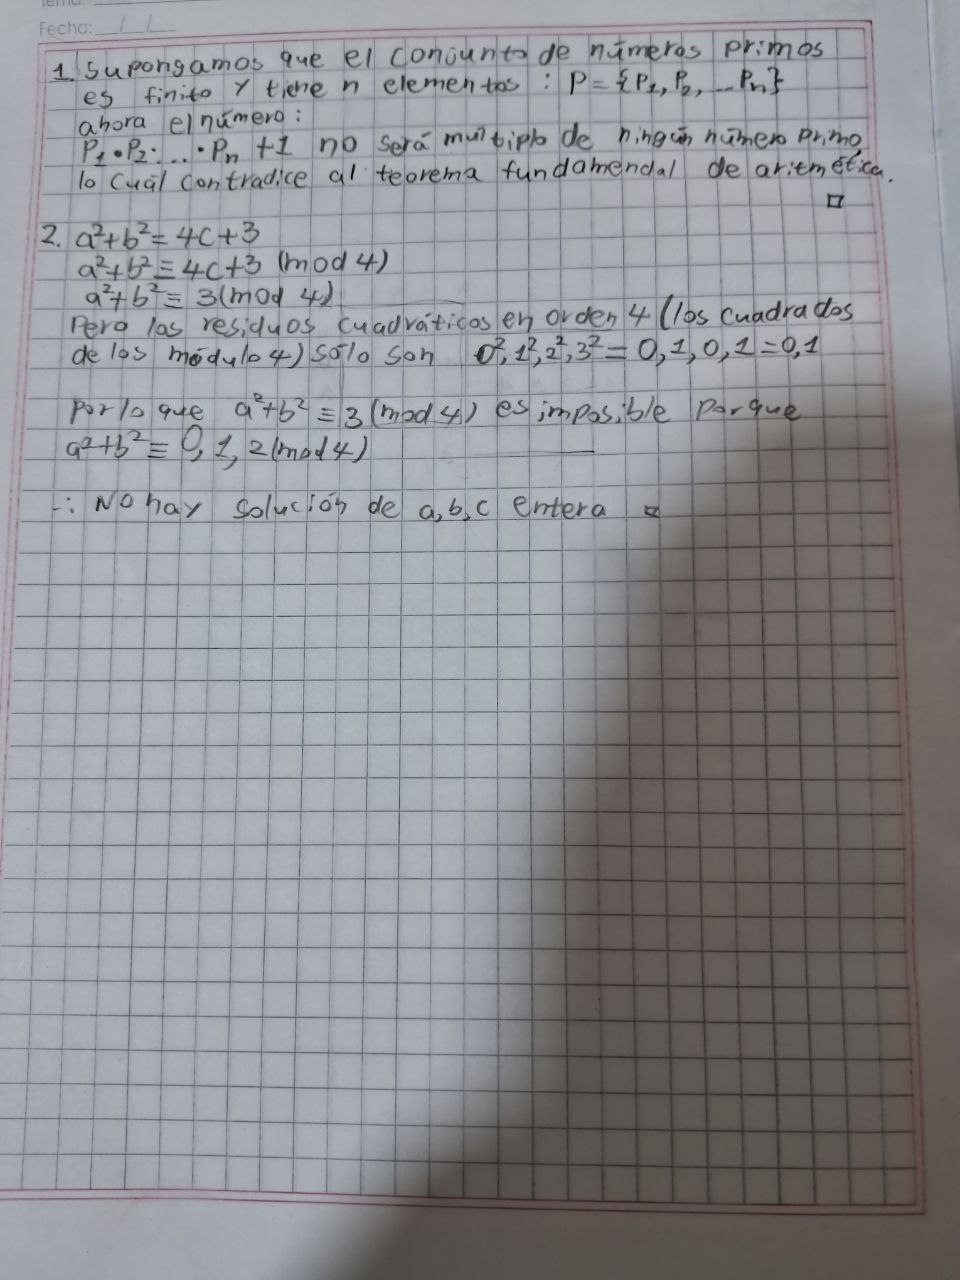 Tema:
Fecha: / /
1. Supongamos que el conjunto de números primos
es finito y tiene n elementos : P = {P₁, P₂, ... Pₙ}
ahora el número:
P₁•P₂•...•Pₙ +1 no será multiplo de ningún número primo,
lo cuál contradice al teorema fundamendal de aritmética.
□
2. a²+b² = 4c+3
a²+b² ≡ 4c+3 (mod 4)
a²+b² ≡ 3(mod 4)
Pero los residuos cuadráticos en orden 4 (los cuadrados
de los módulo 4) sólo son 0², 1², 2², 3² = 0, 1, 0, 1 = 0, 1
Por lo que a²+b² ≡ 3 (mod 4) es imposible porque
a²+b² ≡ 0, 1, 2 (mod 4)
∴ No hay solución de a, b, c entera □